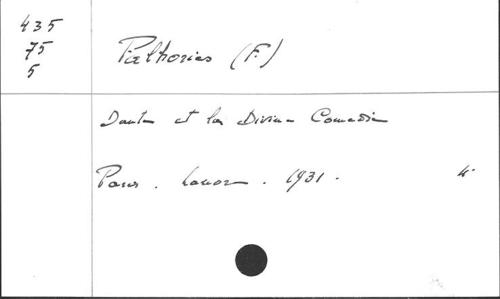 435
75
5
Pielhorias (F.)
Dante et la Divine Comedie
Paris. . 1931.
4°